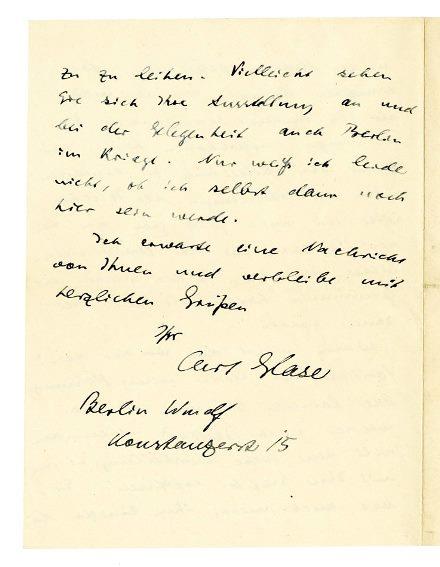 zu zu leihen. Vielleicht sehen
Sie sich Ihre Ausstellung an und
bei der Gelegenheit auch Berlin
im Kriege. Nur weiß ich leide
nicht, ob ich selbst dann noch
hier sein werde.
Ich erwarte eine Nachricht
von Ihnen und verbleibe mit
herzlichen Grüßen
Ihr
Curt Glase
Berlin Wmdf
Konstanzerst 15